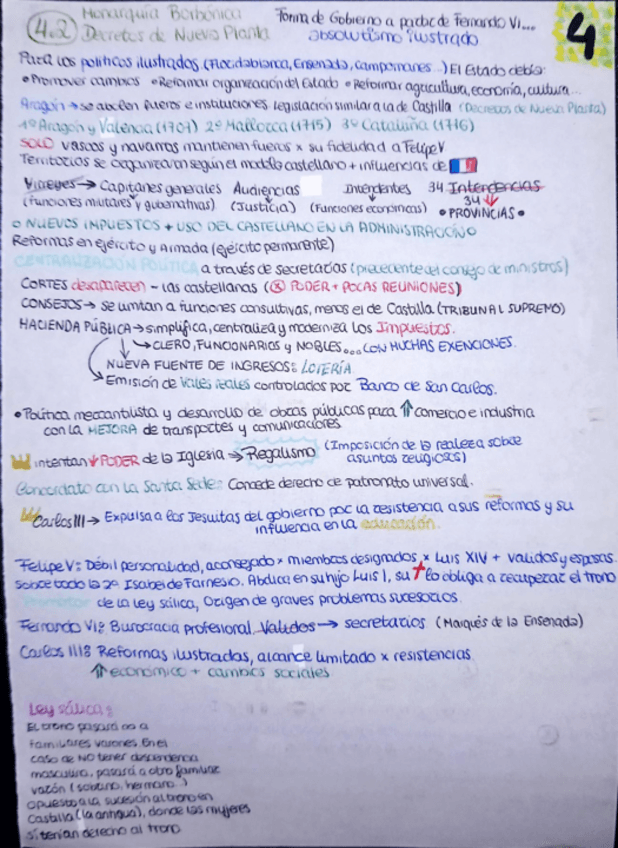 4.2 Monarquía Borbónica Forma de Gobierno a partir de Fernando VI...
Decretos de Nueva Planta absolutismo ilustrado
4
Para los políticos ilustrados (Floridablanca, Ensenada, Campomanes...) El Estado debía:
• Promover cambios • Reformar organización del Estado • Reformar agricultura, economía, cultura...
Aragón → se abolen fueros e instituciones legislación similar a la de Castilla (Decretos de Nueva Planta)
1º Aragón y Valencia (1707) 2º Mallorca (1715) 3º Cataluña (1716)
SOLO vascos y navarros mantienen fueros x su fidelidad a Felipe V
Territorios se organizaron según el modelo castellano + influencias de
Virreyes → Capitanes generales Audiencias Intendentes 34 Intendencias
(funciones militares y gubernativas) (Justicia) (Funciones económicas) 34 ↓ • PROVINCIAS •
○ NUEVOS IMPUESTOS + USO DEL CASTELLANO EN LA ADMINISTRACIÓN ○
Reformas en ejército y Armada (ejército permanente)
CENTRALIZACIÓN POLÍTICA a través de secretarías (precedente del consejo de ministros)
CORTES desaparecen - las castellanas ( PODER + POCAS REUNIONES)
CONSEJOS → se limitan a funciones consultivas, menos el de Castilla (TRIBUNAL SUPREMO)
HACIENDA PÚBLICA → simplifica, centraliza y moderniza los Impuestos.
→ CLERO, FUNCIONARIOS y NOBLES... CON MUCHAS EXENCIONES.
NUEVA FUENTE DE INGRESOS: LOTERÍA
Emisión de vales reales controlados por Banco de San Carlos.
• Política mercantilista y desarrollo de obras públicas para ↑ comercio e industria
con la MEJORA de transportes y comunicaciones
intentan ↓ PODER de la Iglesia → Regalismo (Imposición de la realeza sobre
asuntos religiosos)
Concordato con la Santa Sede: Concede derecho de patronato universal.
Carlos III → Expulsa a los Jesuitas del gobierno por la resistencia a sus reformas y su
influencia en la educación.
Felipe V: Débil personalidad, aconsejado x miembros designados x Luis XIV + validos y esposas.
Sobre todo la 2ª Isabel de Farnesio. Abdica en su hijo Luis I, su † lo obliga a recuperar el trono
Promotor de la ley sálica, Origen de graves problemas sucesorios.
Fernando VI: Burocracia profesional. Validos → secretarios (Marqués de la Ensenada)
Carlos III: Reformas ilustradas, alcance limitado x resistencias
↑ económico + cambios sociales
Ley sálica:
El trono pasará a
familiares varones. En el
caso de NO tener descendencia
masculina, pasará a otro familiar
varón (sobrino, hermano..)
opuesto a la sucesión al trono en
Castilla (la antigua), donde las mujeres
sí tenían derecho al trono